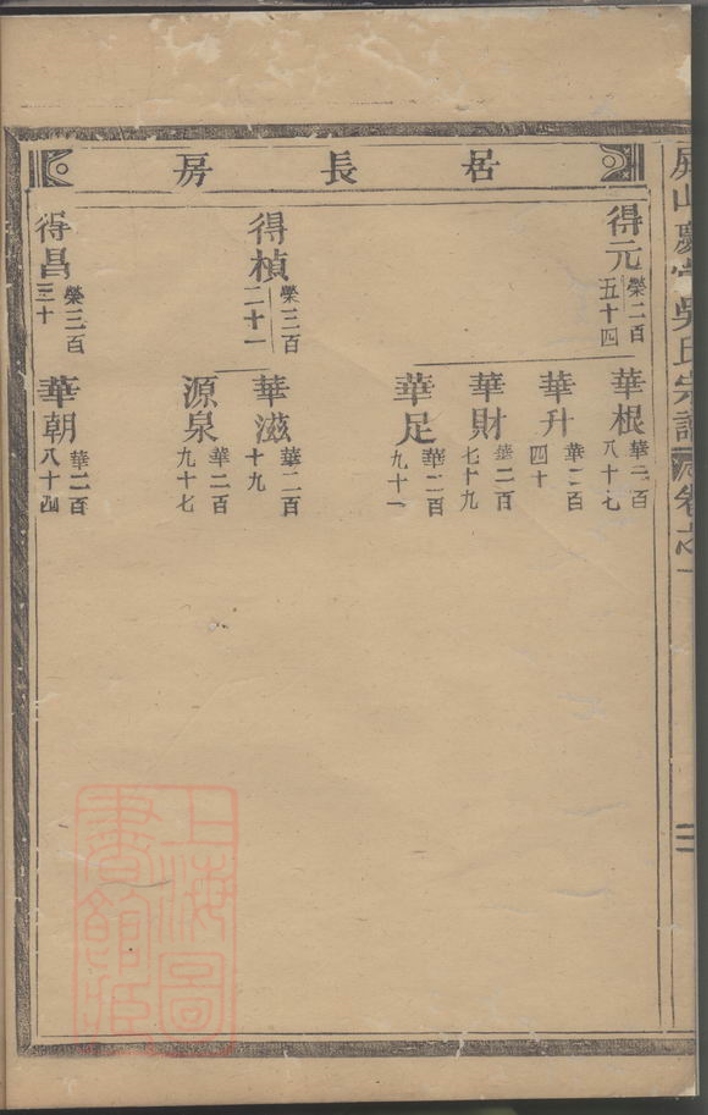 居長房
得元 榮二百五十四
華根 華二百八十七
華升 華二百四十
華財 華二百七十九
華足 華二百九十一
得楨 榮三百二十一
華滋 華二百十九
源泉 華二百九十七
得昌 榮三百三十
華朝 華二百八十四
吳氏宗譜
卷之一
上海圖書館藏